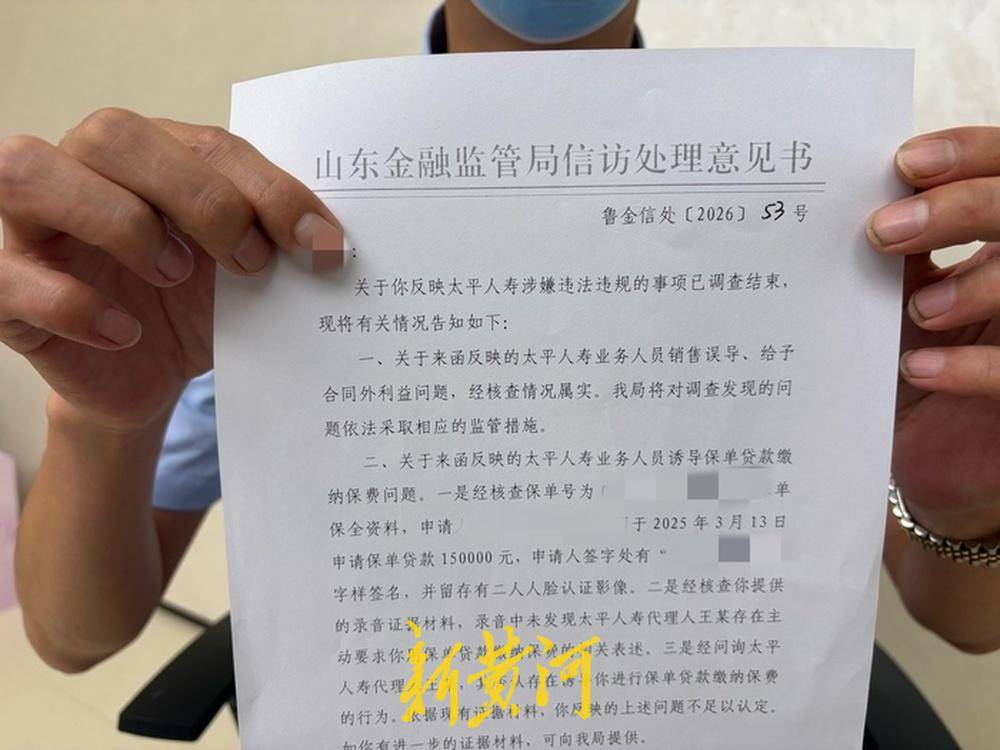 山东金融监管局信访处理意见书
鲁金信处〔2026〕53号
：
关于你反映太平人寿涉嫌违法违规的事项已调查结束，
现将有关情况告知如下：
一、关于来函反映的太平人寿业务人员销售误导、给予
合同外利益问题，经核查情况属实。我局将对调查发现的问
题依法采取相应的监管措施。
二、关于来函反映的太平人寿业务人员诱导保单贷款缴
纳保费问题。一是经核查保单号为 单
保全资料，申请 于 2025 年 3 月 13 日
申请保单贷款 150000 元，申请人签字处有“
字样签名，并留存有二人人脸认证影像。二是经核查你提供
的录音证据材料，录音中未发现太平人寿代理人王某存在主
动要求你 保单贷款 纳保费的 关表述。三是经问询太平
人寿代理 存在诱导你进行保单贷款缴纳保费
的行为。依据现有证据材料，你反映的上述问题不足以认定。
如你有进一步的证据材料，可向我局提供。
新黄河